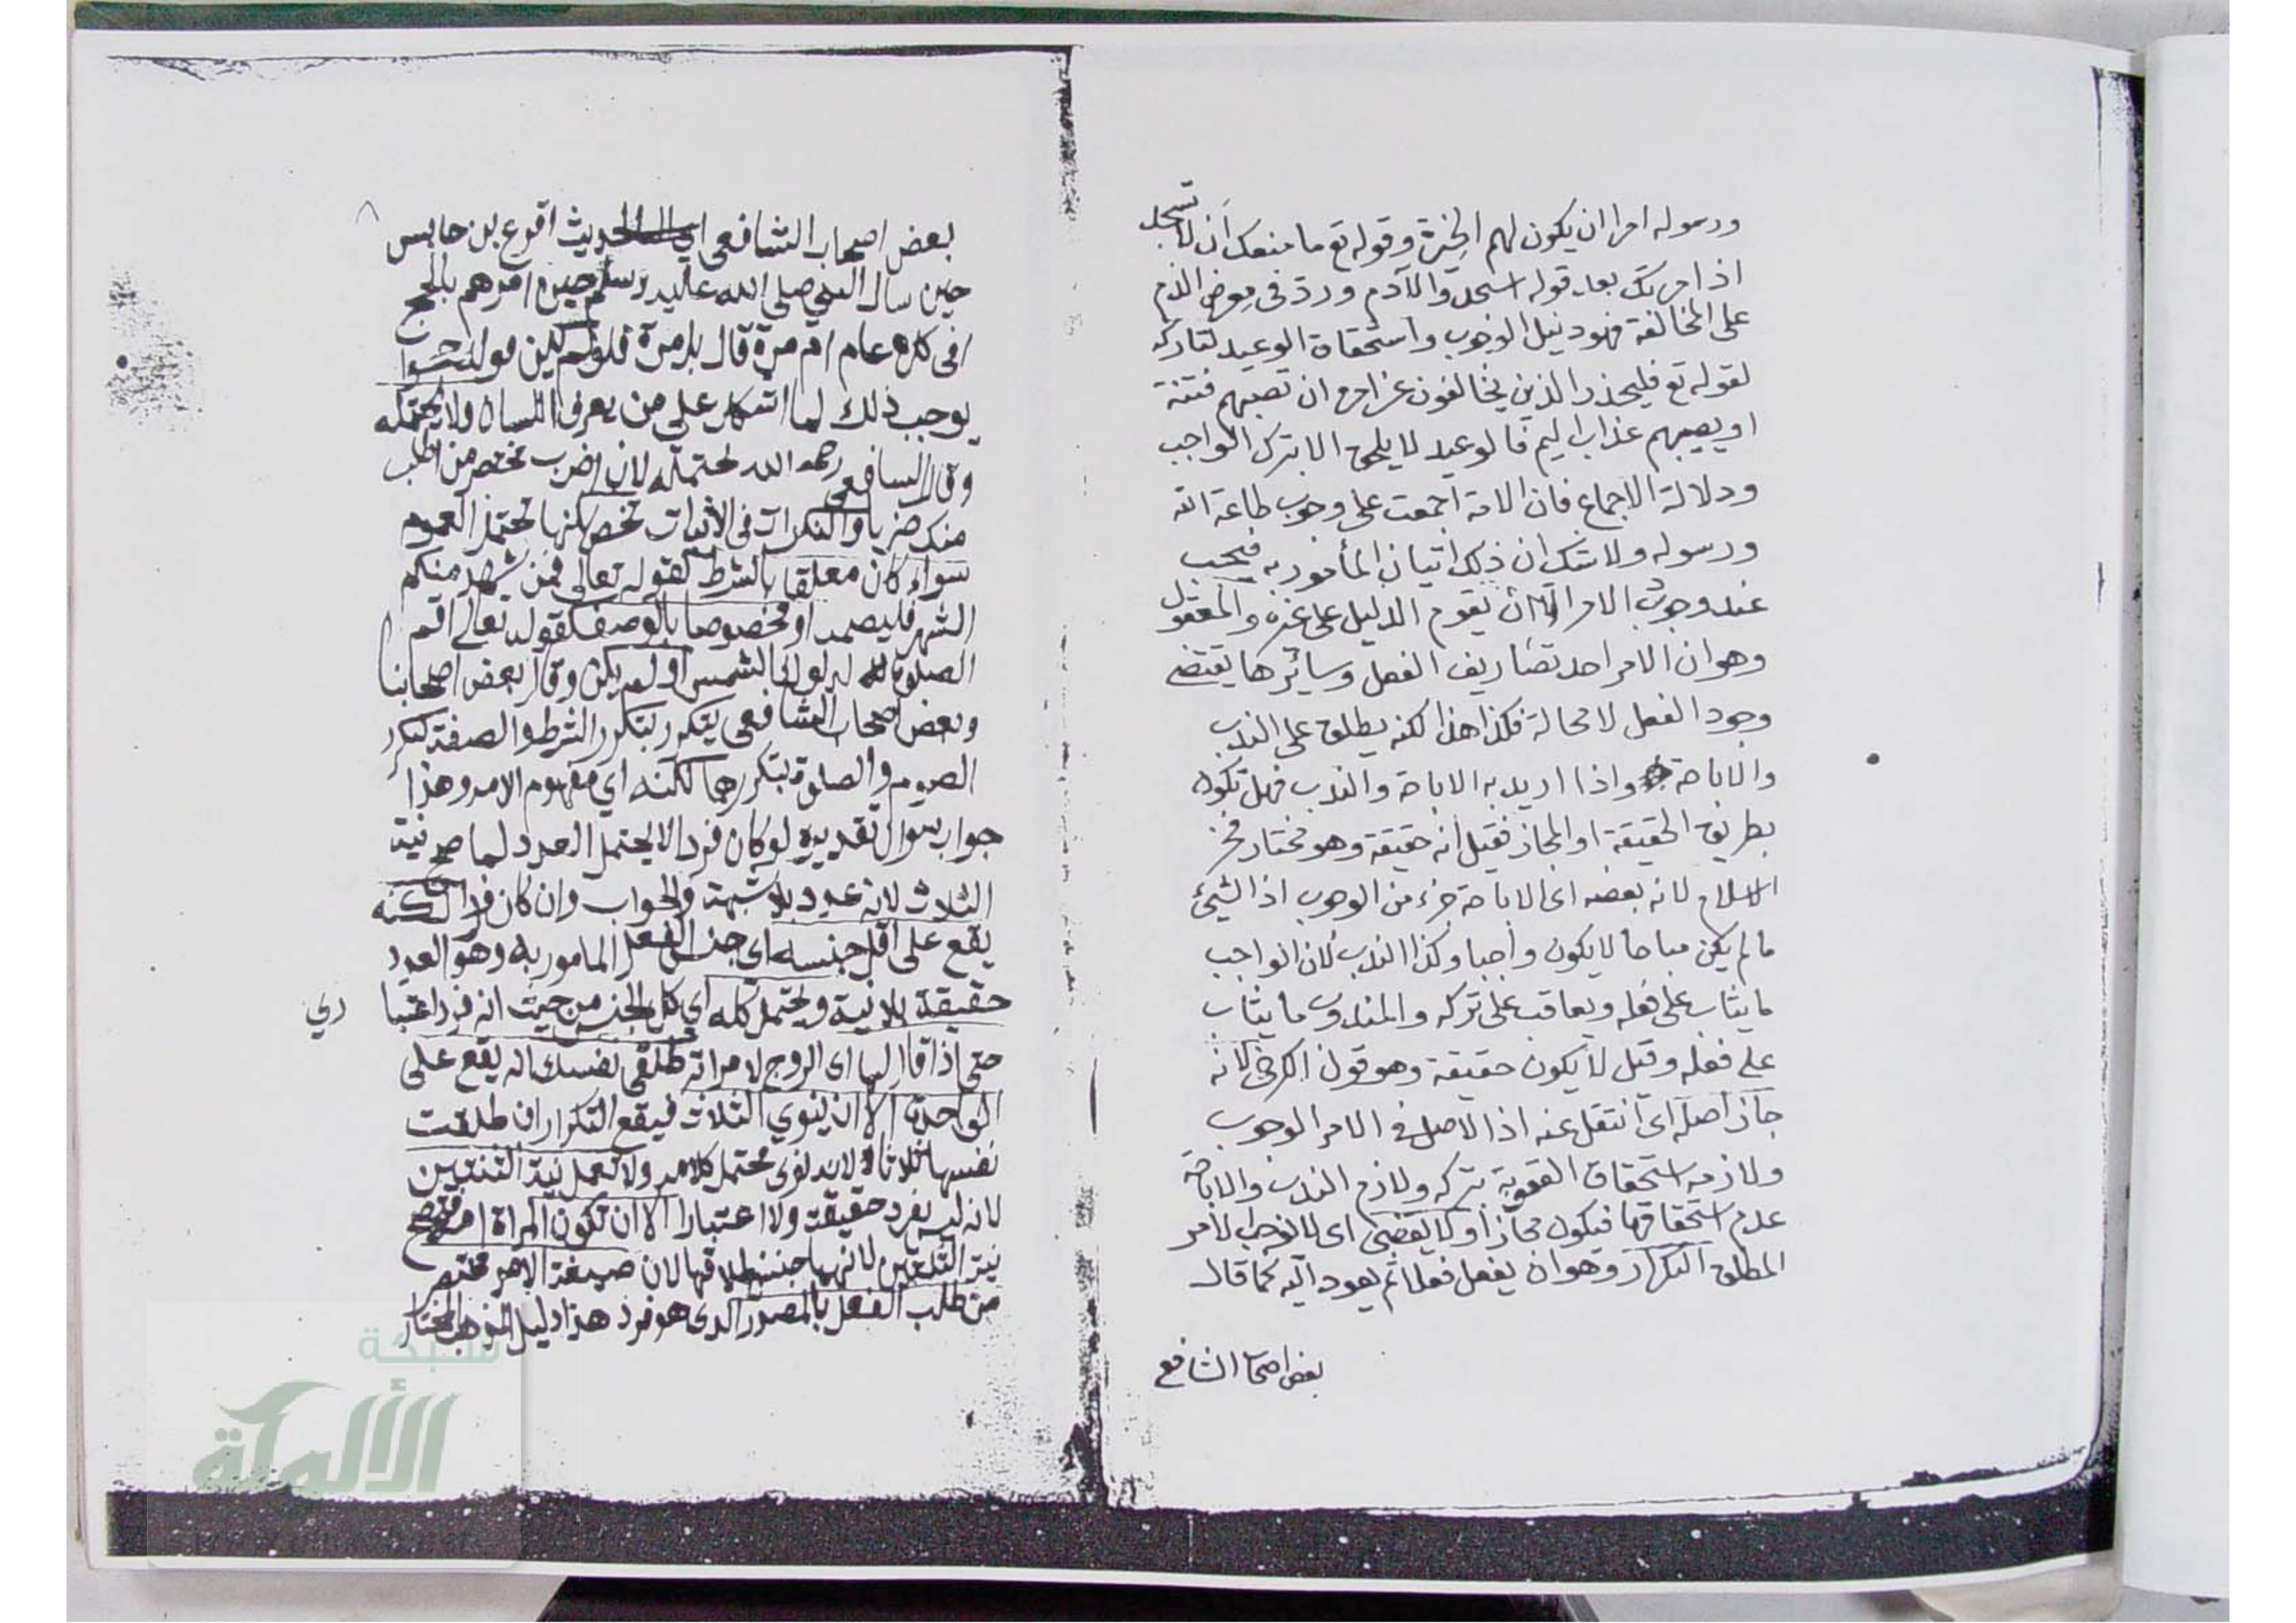 ورسوله امرا ان يكون لهم الخيرة وقوله تع ما منعك ان لا تسجد
اذ امرتك بعد قوله اسجدوا لآدم ورد في معرض الذم
على المخالفة فهو دليل الوجوب واستحقاق الوعيد لتاركه
لقوله تع فليحذر الذين يخالفون عن امره ان تصيبهم فتنة
او يصيبهم عذاب اليم فالوعيد لا يلحق الا بترك الواجب
ودلالة الاجماع فان الامة اجمعت على وجوب طاعة الله
ورسوله ولا شك ان ذلك اتيان المأمور به فيجب
عند وجوب الامر الا ان يقوم الدليل على غيره والمعقول
وهو ان الامر احد تصاريف الفعل وسائرها يقتضي
وجود الفعل لا محالة فكذا هذا لكنه يطلق على الندب
والاباحة واذا اريد به الاباحة والندب فهل تكون
بطريق الحقيقة او المجاز فقيل انه حقيقة وهو مختار فخر
الاسلام لانه بعضه اى الاباحة جزء من الوجوب اذ الشيئ
ما لم يكن مباحا لا يكون واجبا وكذا الندب لان الواجب
ما يثاب على فعله ويعاقب على تركه والمندوب ما يثاب
على فعله وقيل لا يكون حقيقة وهو قول الكرخي لانه
جاز اصله اى انتقل عنه اذ الاصل في الامر الوجوب
ولازمه استحقاق العقوبة بتركه ولازم الندب والاباحة
عدم استحقاقها فيكون مجازا ولا يقتضى اى لا يوجب الامر
المطلق التكرار وهو ان يفعل فعلا ثم يعود اليه كما قال
بعض اصحاب الشافعي
بعض اصحاب الشافعي الحديث اقرع بن حابس
حين سال النبي صلى الله عليه وسلم حين امرهم بالحج
افى كل عام ام مرة قال بل مرة فلو لم يكن
يوجب ذلك لما اشكل على من يعرف اللسان ولا يحتمله
وقال الشافعي رحمه الله يحتمله لان اضرب مختصر من اطلب
منك ضربا والنكرات فى الاثبات تخص لكنها تحتمل العموم
سواء كان معلقا بالشرط كقوله تعالى فمن شهد منكم
الشهر فليصمه او مخصوصا بالوصف كقوله تعالى اقم
الصلوة لدلوك الشمس او لم يكن وقال بعض اصحابنا
وبعض اصحاب الشافعي يتكرر بتكرر الشرط والصفة كتكرر
الصوم والصلوة بتكررهما لكنه اي مفهوم الامر وهذا
جواب سوال تقديره لو كان فردا لا يحتمل العدد لما صح نية
الثلاث لانه عدد بلا شبهة والجواب وان كان فردا لكنه
يقع على اقل جنسه اى جنس الفعل المامور به وهو العدد
حقيقة بلا نية ويحتمل كله اي كل الجنس من حيث انه فرد اعتبا ري
حتى اذا قال لها اى الزوج لامراته طلقي نفسك انه يقع على
الواحدة الا ان ينوي الثلاث فيقع التكرار ان طلقت
نفسها ثلاثا لانه نوى محتمل كلامه ولا تعمل نية الثنتين
لانه ليس بفرد حقيقة ولا اعتبارا الا ان تكون المراة امة فتصح
نية الثنتين لانهما جنس طلاقها لان صيغة الامر مختصر
من طلب الفعل بالمصدر الذى هو فرد هذا دليل المذهب المختار
شبكة
الألوكة